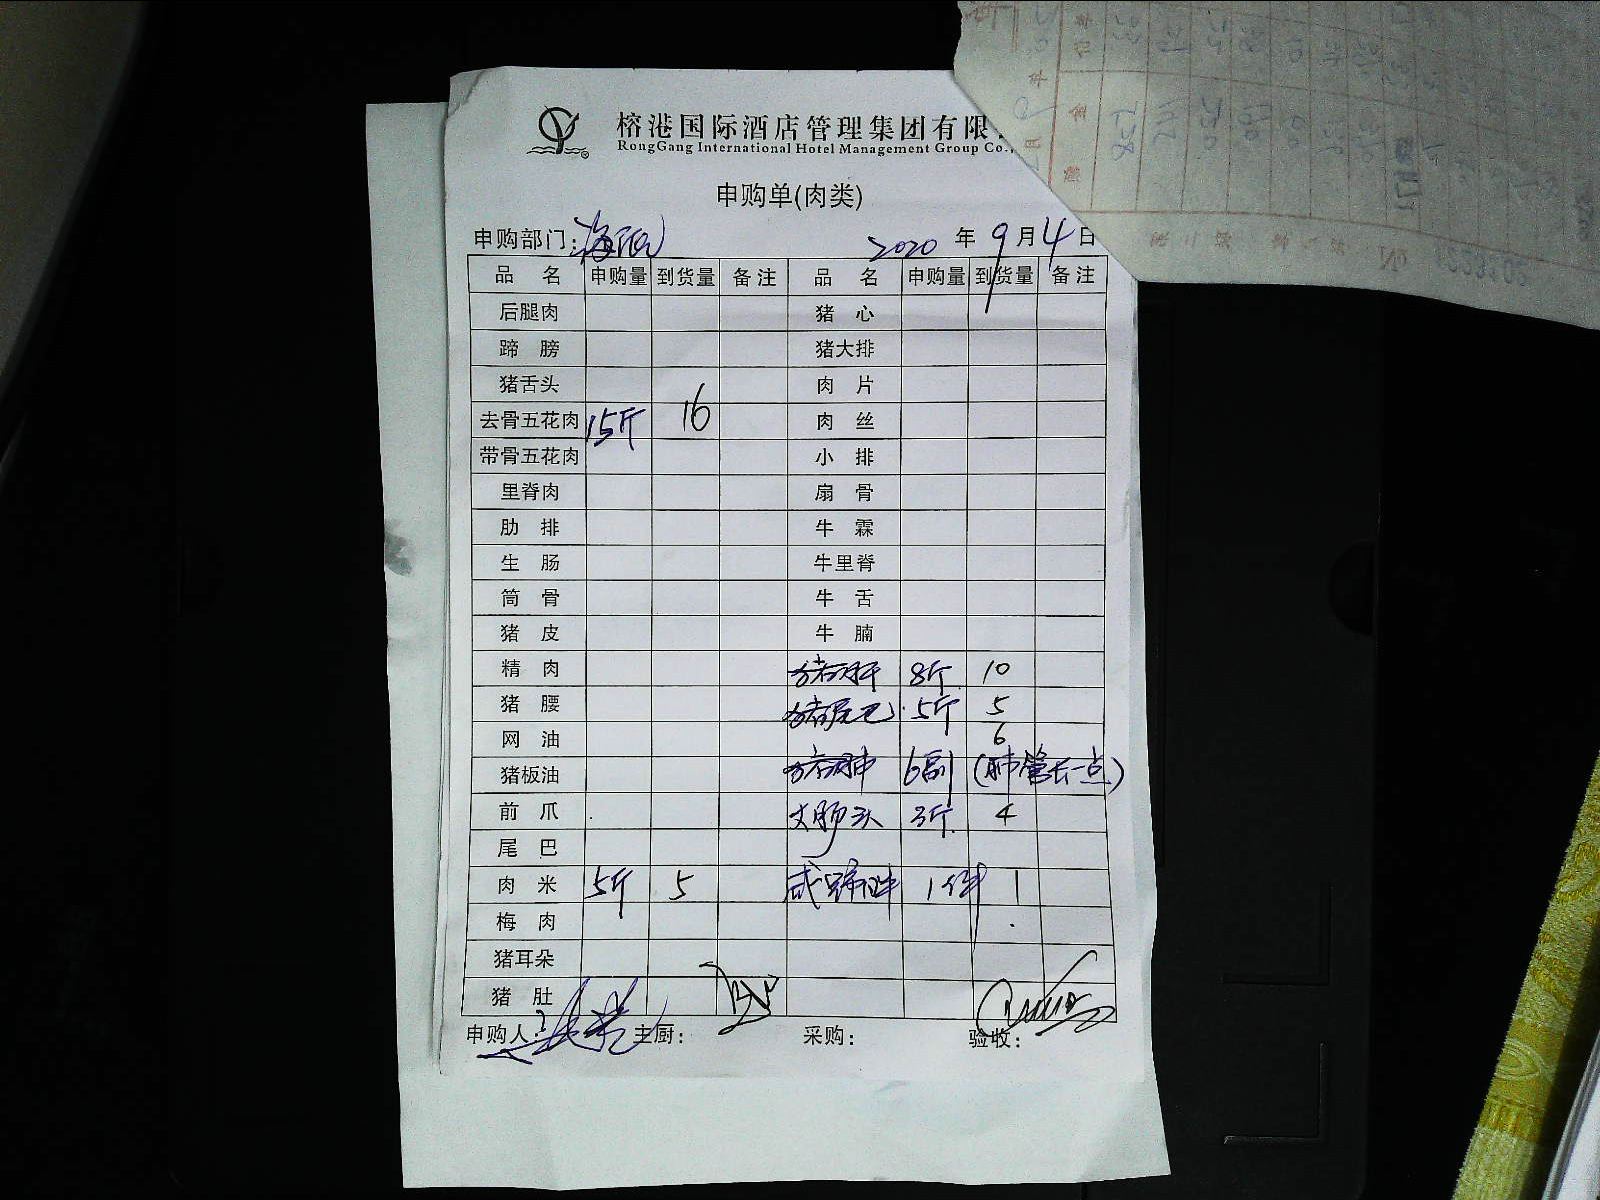 榕港国际酒店管理集团有限
RongGang International Hotel Management Group Co.,
申购单(肉类)
申购部门: 2020 年 9 月 4 日
品 名 申购量 到货量 备注 品 名 申购量 到货量 备注
后腿肉 猪 心
蹄 膀 猪大排
猪舌头 肉 片
去骨五花肉 15斤 16 肉 丝
带骨五花肉 小 排
里脊肉 扇 骨
肋 排 牛 霖
生 肠 牛里脊
筒 骨 牛 舌
猪 皮 牛 腩
精 肉 猪肝 8斤 10
猪 腰 猪尾巴 5斤 5
网 油 6
猪板油 猪肺 6副 (肺管长一点)
前 爪 大肠头 3斤 4
尾 巴
肉 米 5斤 5 咸蹄 1件 1
梅 肉
猪耳朵
猪 肚
申购人: 主厨: 采购: 验收: